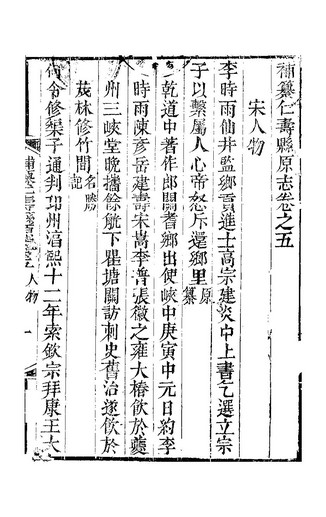 補纂仁壽縣原志卷之五
宋人物
李時雨仙井監鄉貢進士高宗建炎中上書乞選立宗
子以繫屬人心帝怒斥還鄉里原纂
乾道中著作郎關耆鄉出使峽中庚寅中元日約李
時雨陳彥岳建壽宋嵩李普張徽之雍大椿飲於夔
州三峽堂晩擕餘航下瞿塘關訪刺史舊治遂飲於
茂林修竹間名勝記
何舍修榘子通判邛州淳熙十二年索欽宗拜康王大
補纂仁壽縣原志 卷五 人物 一